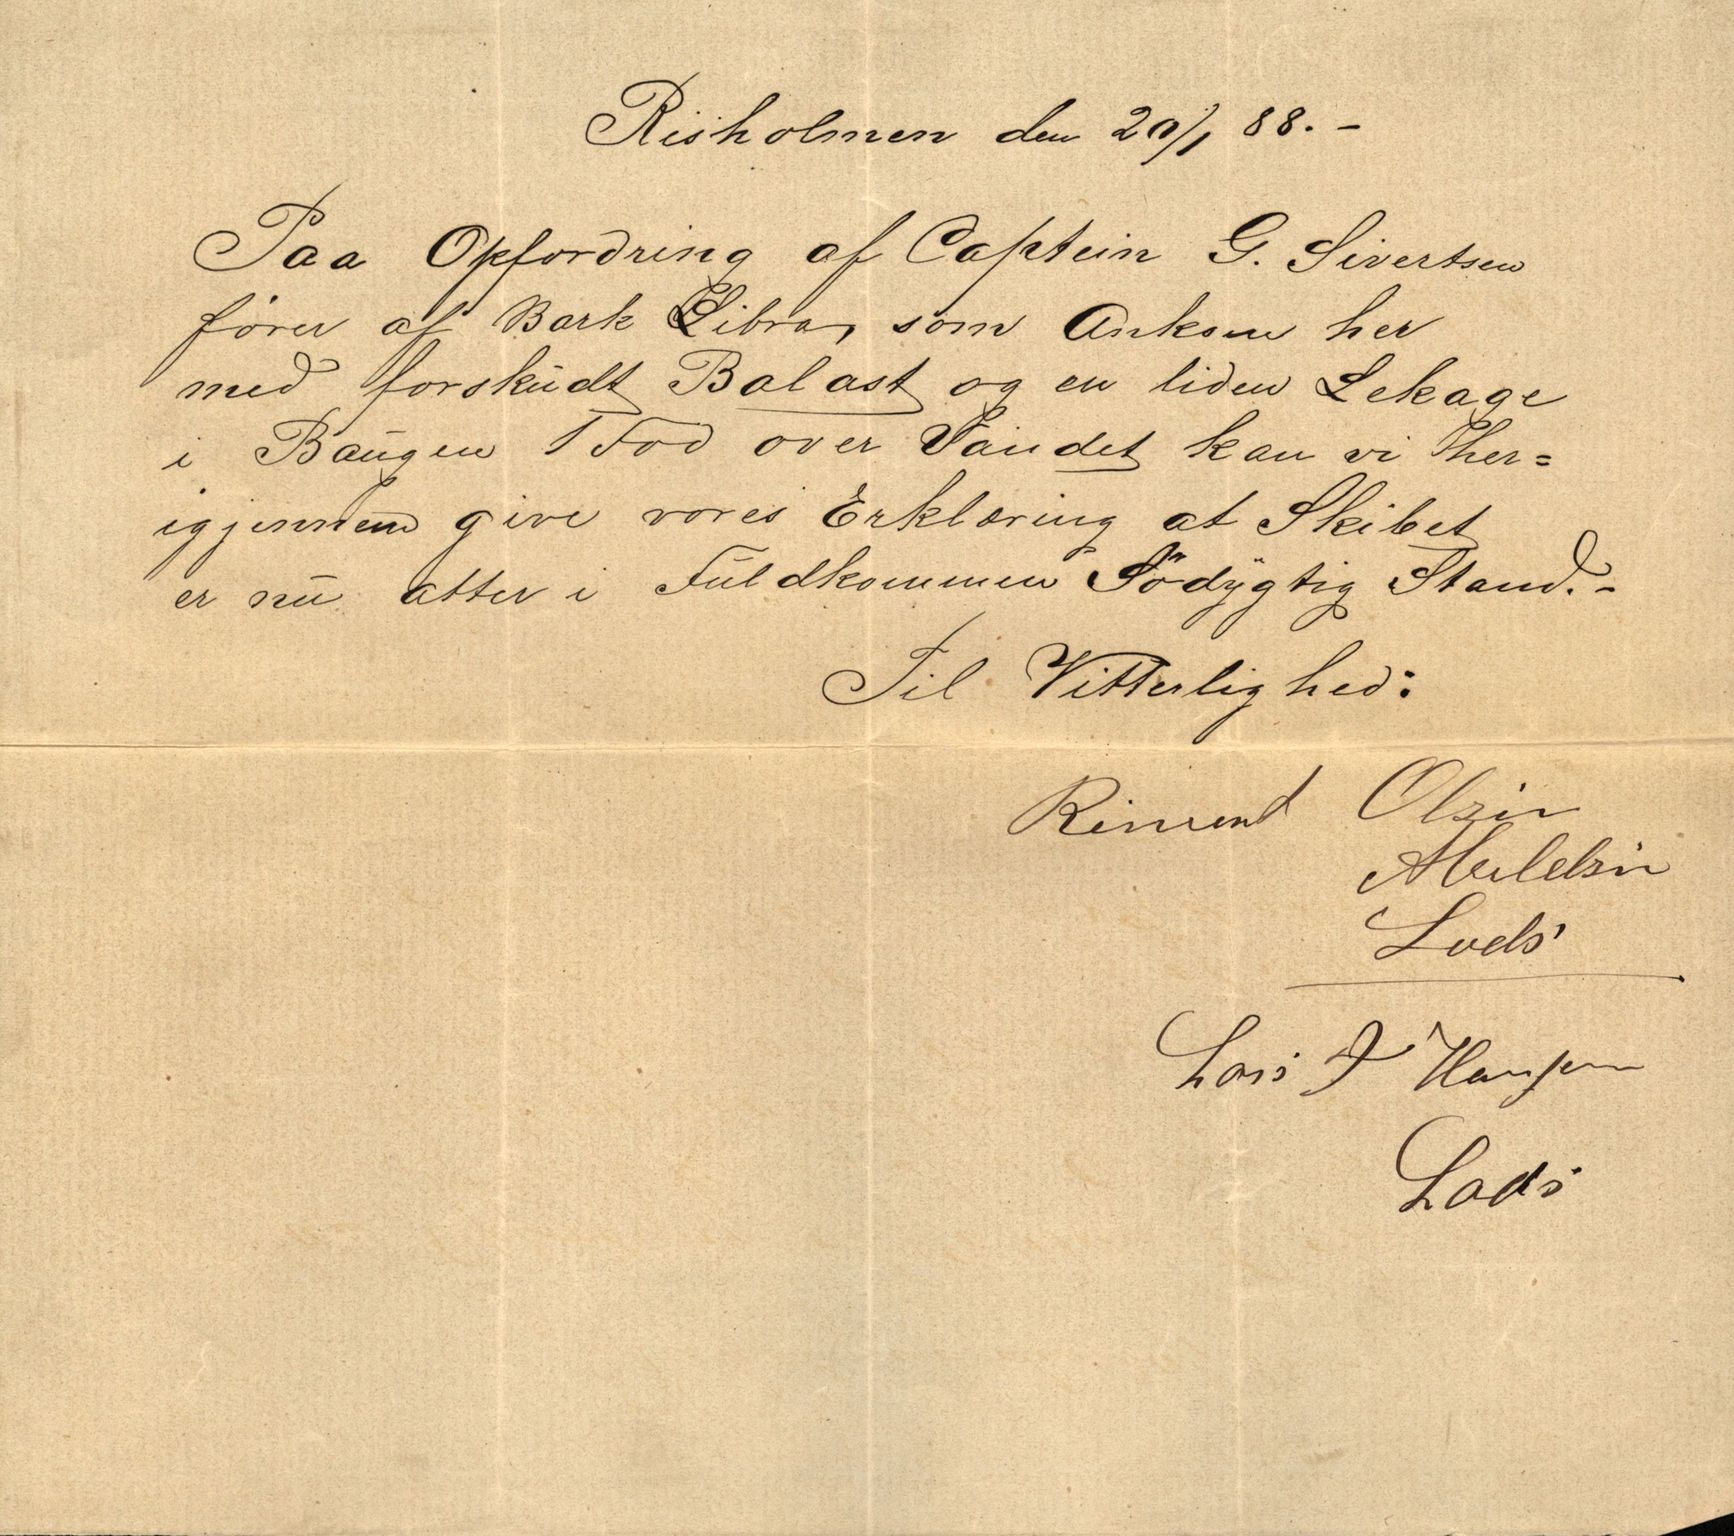 Risholmen den 20/1 88. -
Paa Opfordring af Captein G. Sivertsen
fører af Bark Libra, som Anksm her
med forskudt Balast og en liden Lekage
i Baugen 1 Fod over Vandet kan vi her=
igjennem give vores Erklæring at Skibet
er nu atter i Fuldkommen Södygtig Stand. -
Til Vitterlighed:
Olsen
Lods
Lars J Hansen
Lods